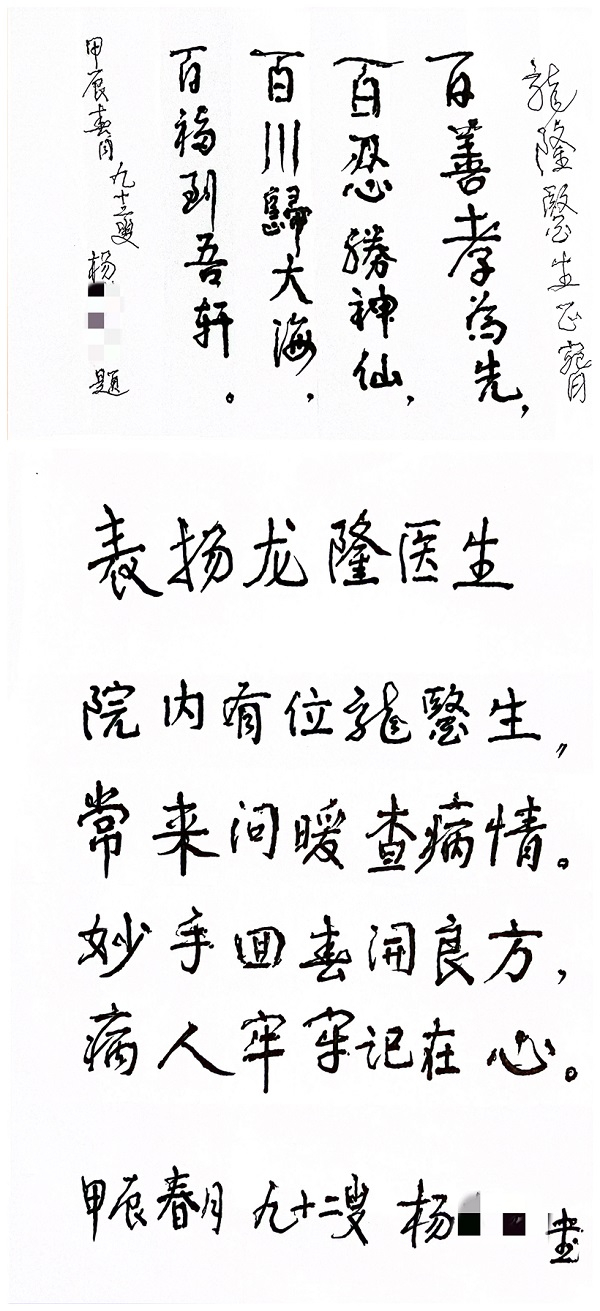 龍隆醫生正
百善孝為先,
百忍勝神仙,
百川歸大海,
百福到吾轩。
甲辰春月 九十二叟 杨 题
表扬龙隆医生
院内有位龍醫生,
常来问暖查病情。
妙手回春開良方,
病人牢牢记在心。
甲辰春月 九十二叟 杨 書